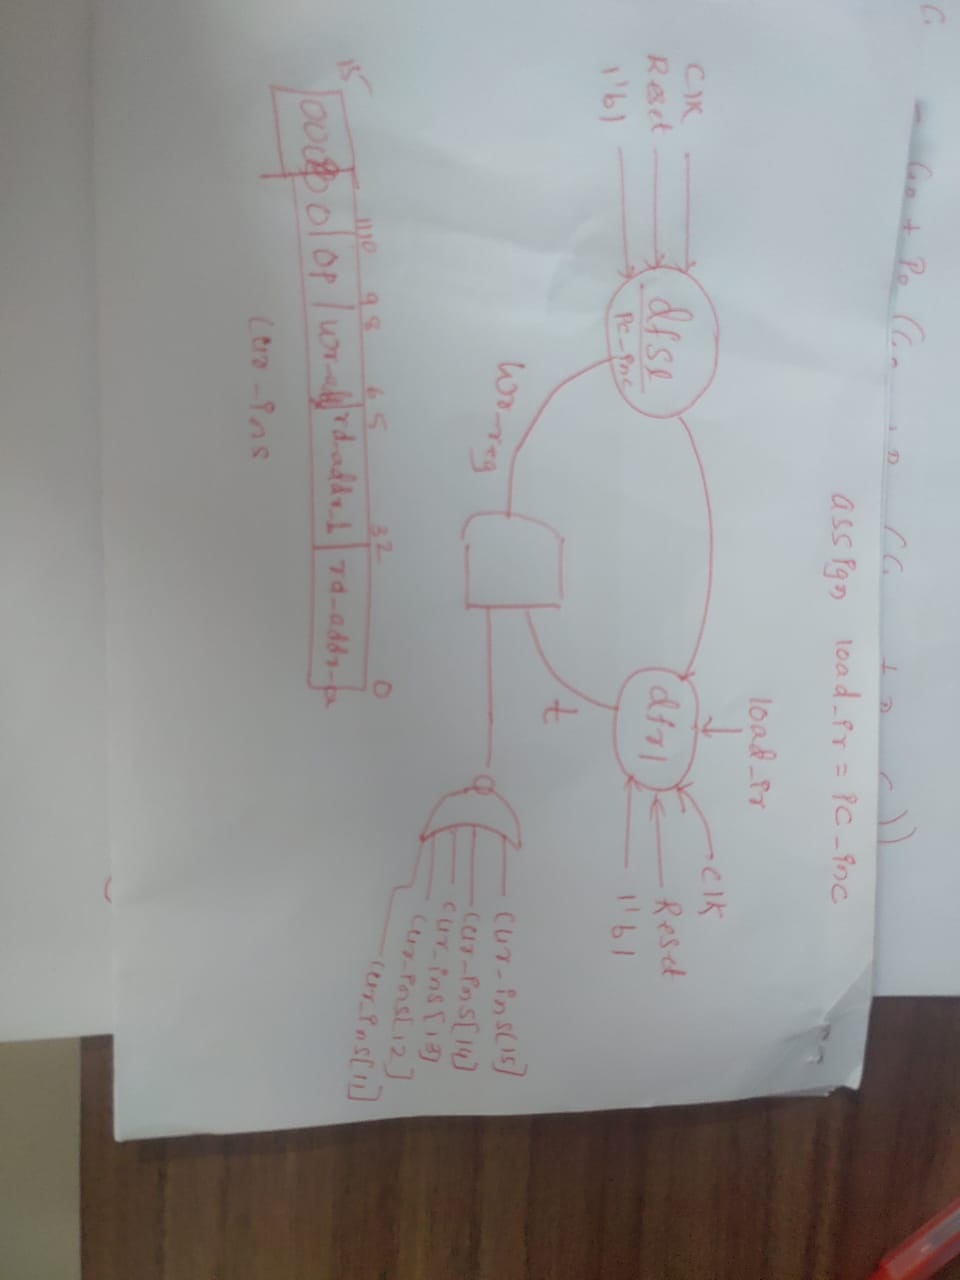 assign load_ir = pc_inc
load_ir
clk
Reset
1'b1
dfsl
pc_inc
dfrl
clk
Reset
1'b1
t
wr_reg
cur_ins[15]
cur_ins[14]
cur_ins[13]
cur_ins[12]
cur_ins[11]
15 11 10 9 8 6 5 3 2 0
0 op rd_addr_1
cur_ins